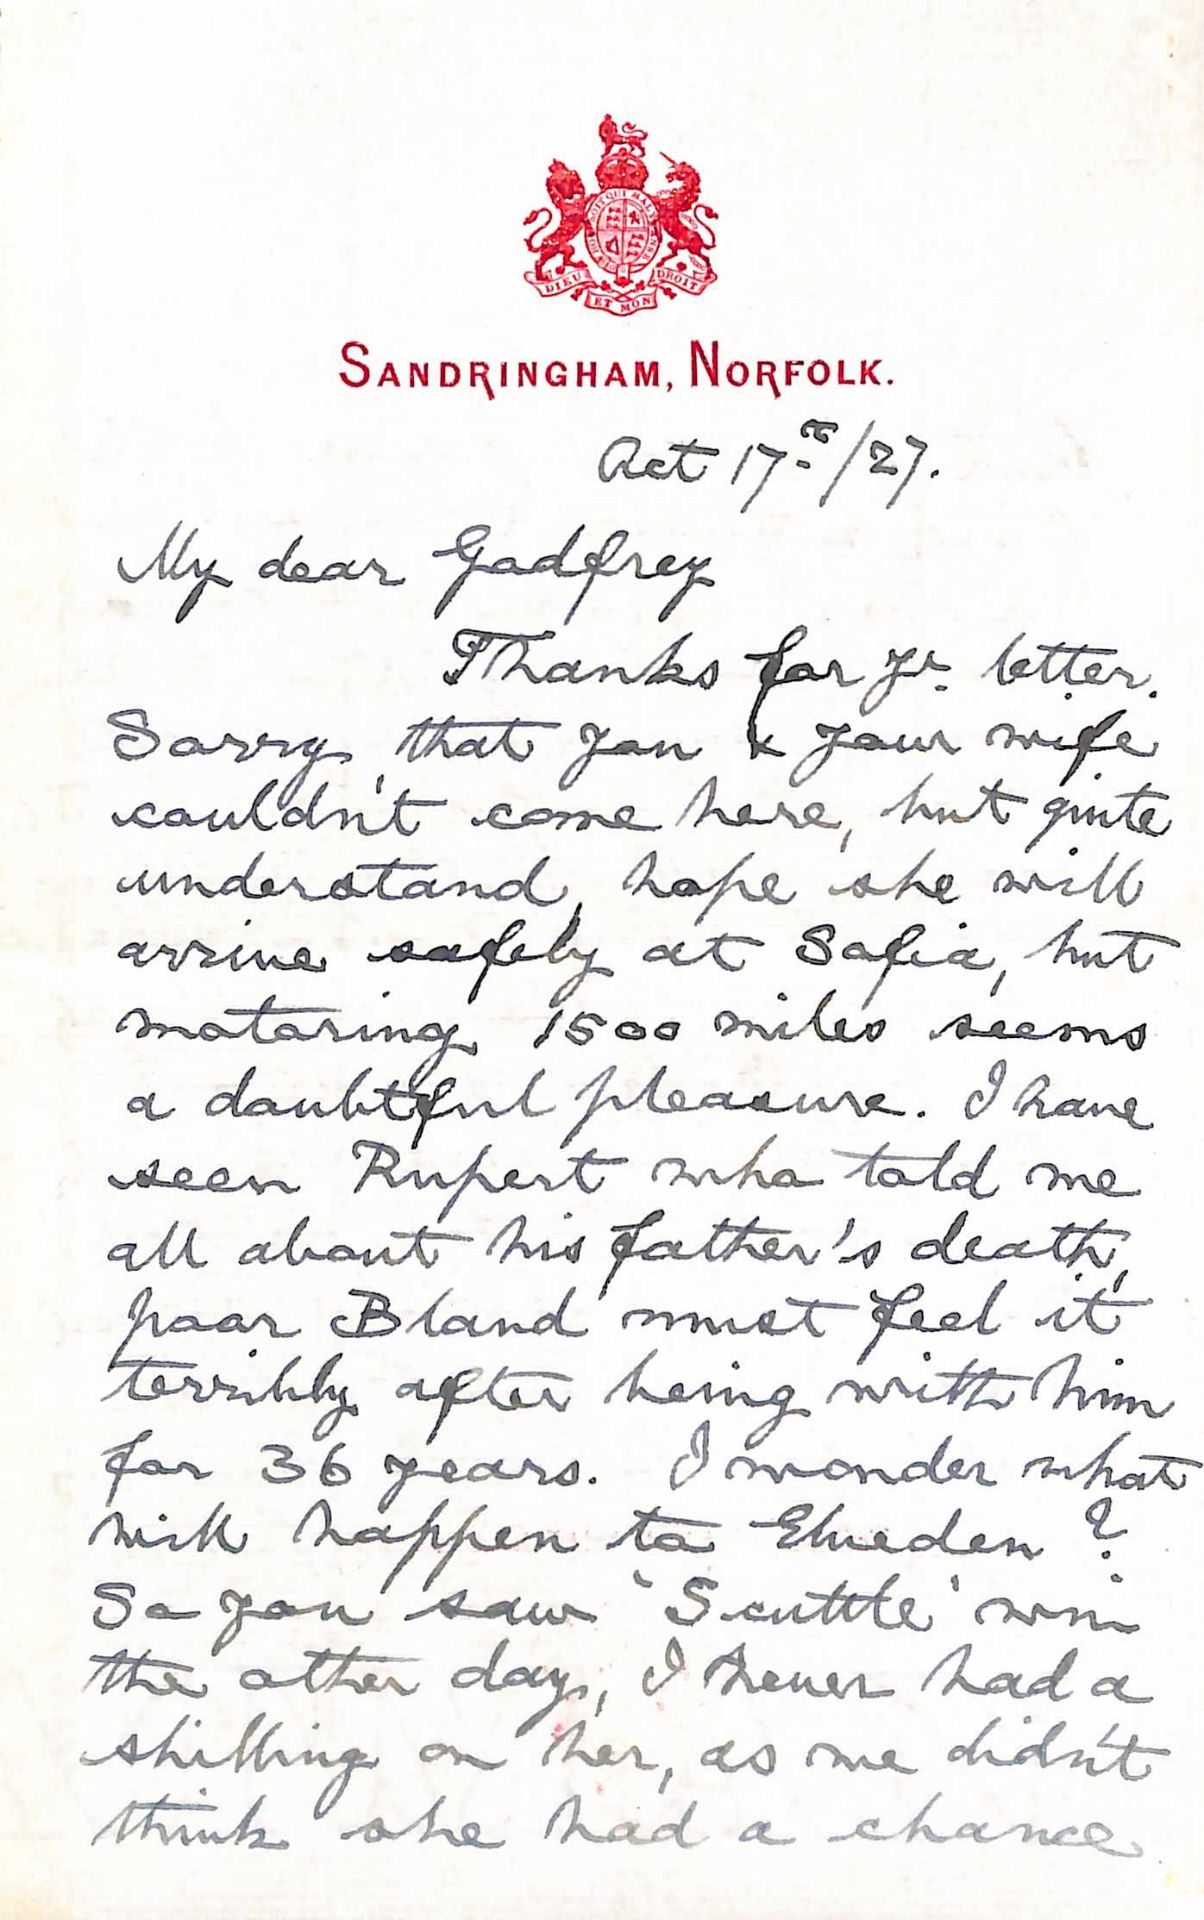 HONI SOIT QUI MAL Y PENSE
DIEU ET MON DROIT
SANDRINGHAM, NORFOLK.
Oct 17th/27.
My dear Godfrey
Thanks for yr. letter.
Sorry that you & your wife
couldn't come here, but quite
understand, hope she will
arrive safely at Sofia, but
motoring 1500 miles seems
a doubtful pleasure. I have
seen Rupert who told me
all about his father's death,
poor Bland must feel it
terribly after being with him
for 36 years. I wonder what
will happen to Elveden?
So you saw 'Scuttle' win
the other day, I never had a
shilling on her, as we didn't
think she had a chance